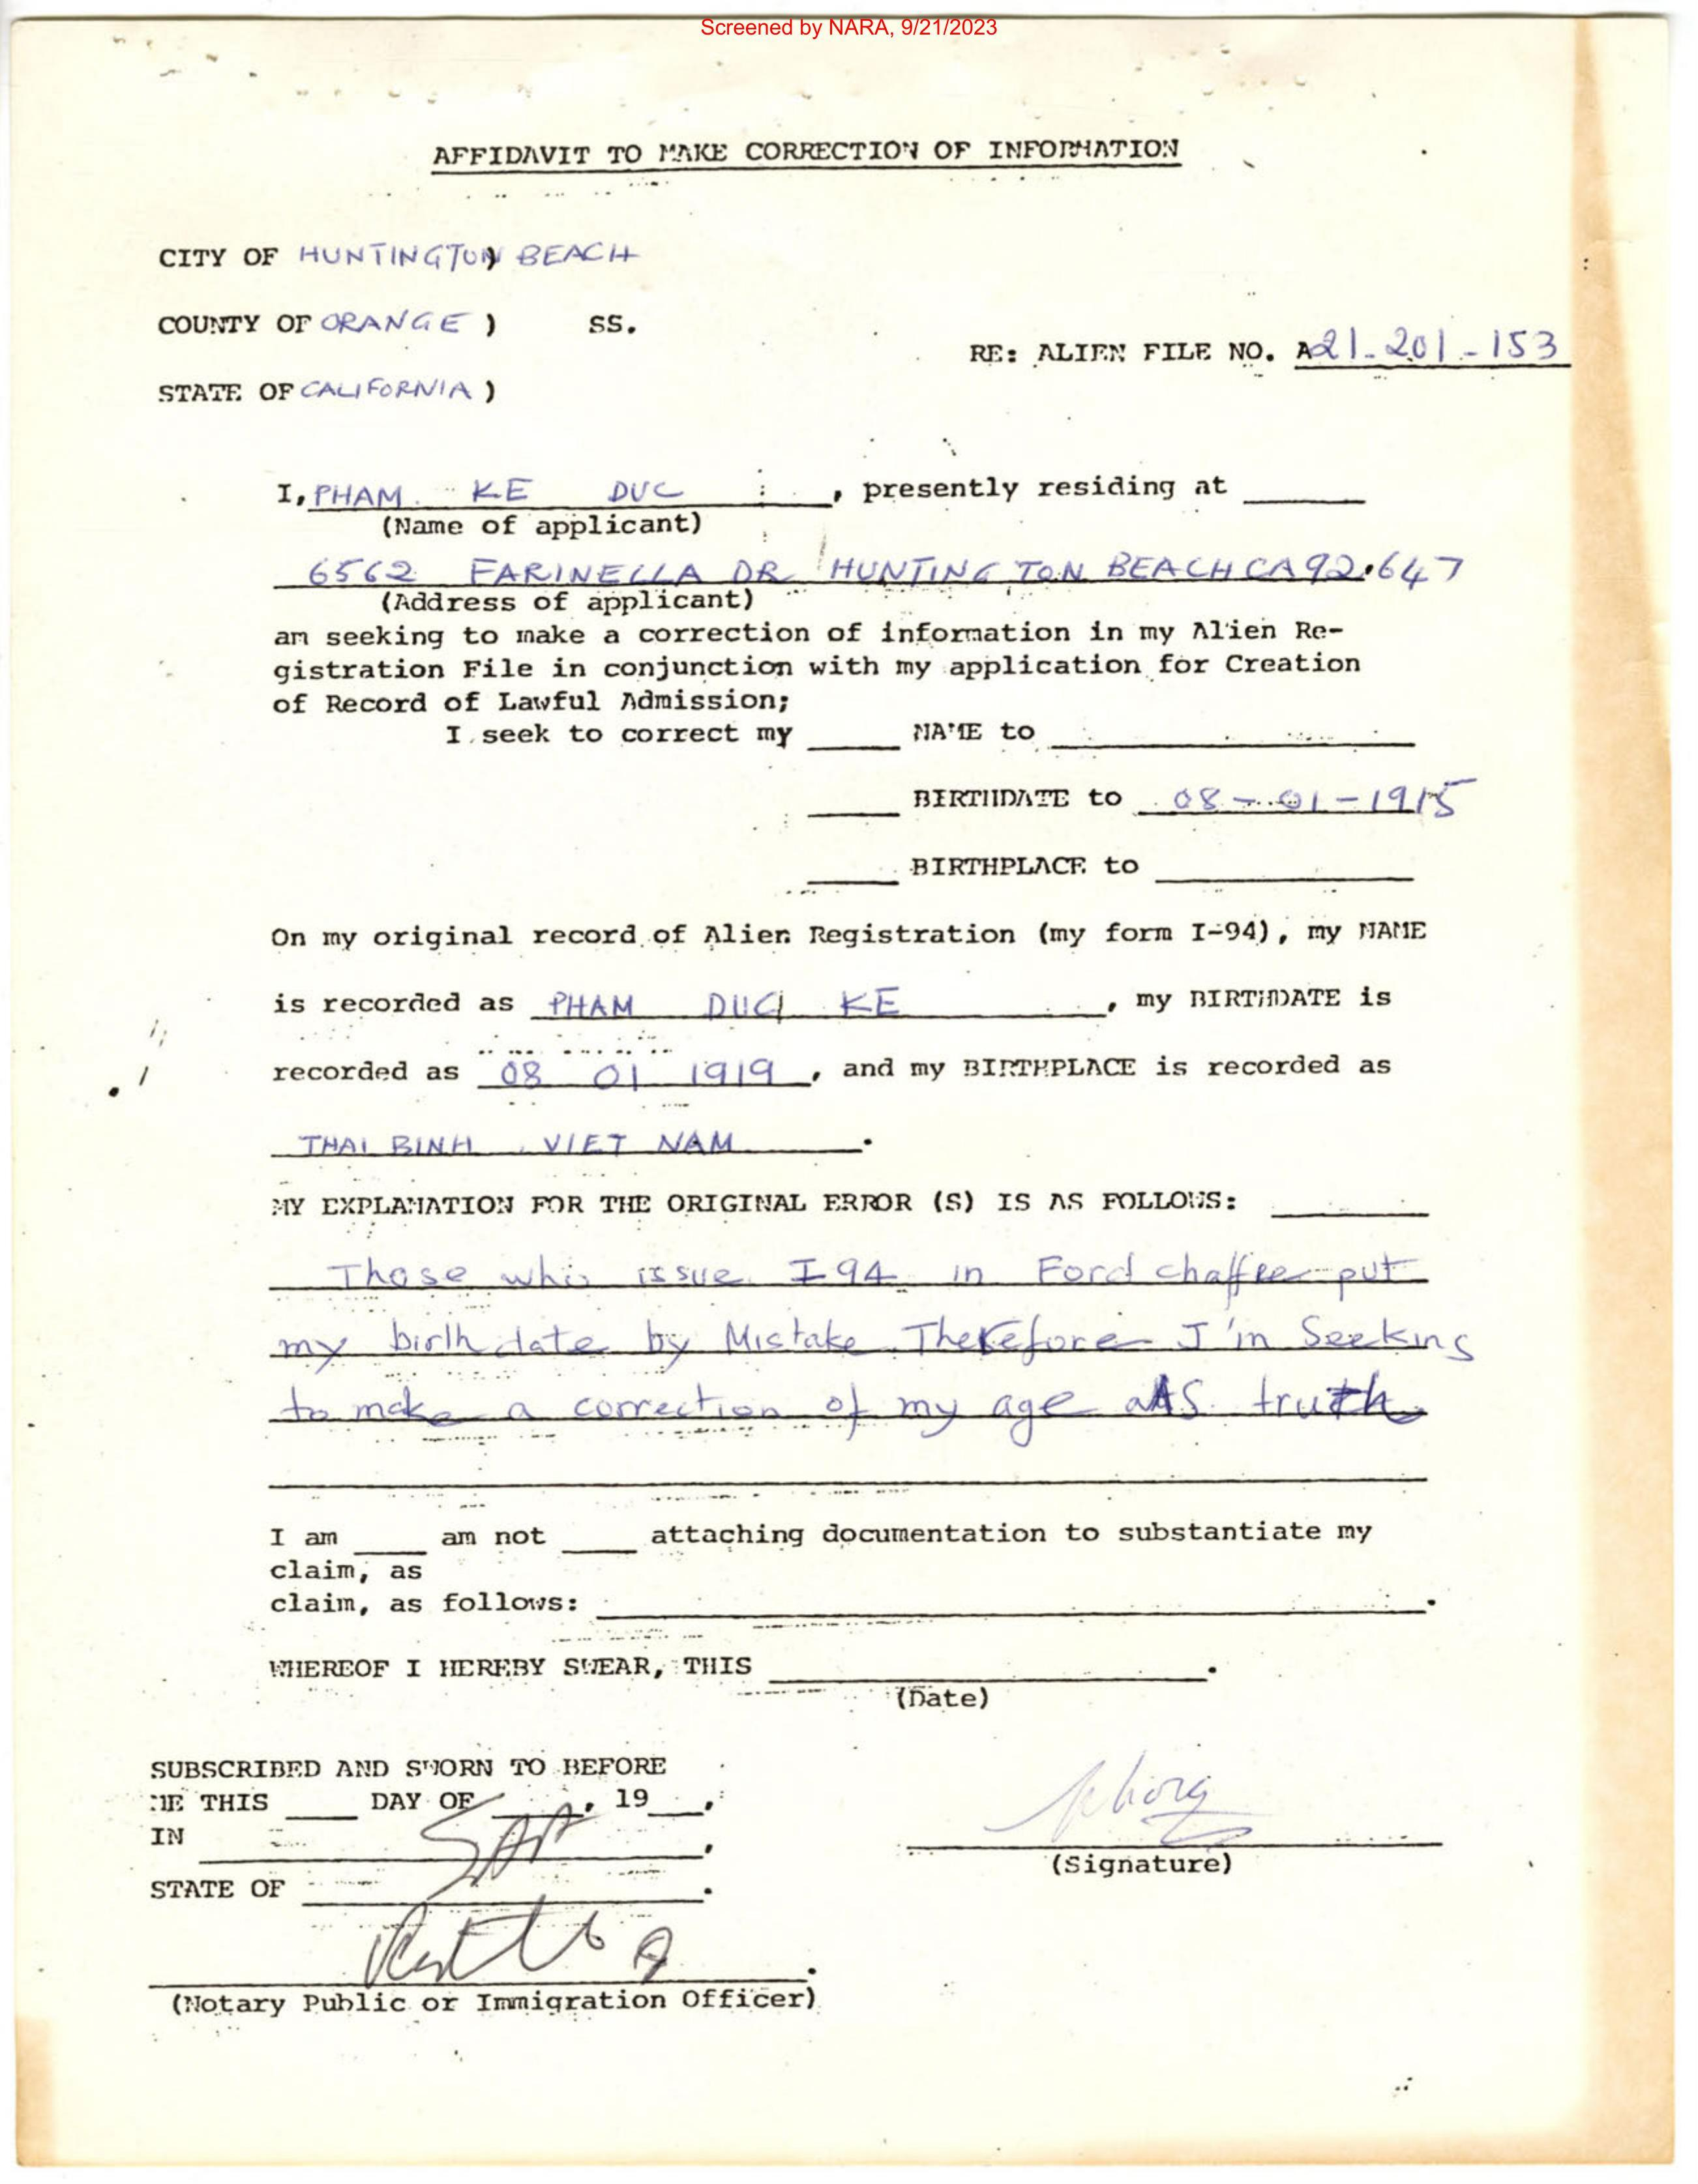 Screened by NARA, 9/21/2023
AFFIDAVIT TO MAKE CORRECTION OF INFORMATION
CITY OF HUNTINGTON) BEACH
COUNTY OF ORANGE ) SS.
RE: ALIEN FILE NO. A21-201-153
STATE OF CALIFORNIA )
I, PHAM KE DUC, presently residing at
(Name of applicant)
6562 FARINELLA DR HUNTINGTON BEACH CA 92647
(Address of applicant)
am seeking to make a correction of information in my Alien Re-
gistration File in conjunction with my application for Creation
of Record of Lawful Admission;
I seek to correct my ____ NAME to ____
____ BIRTHDATE to 08-01-1915
____ BIRTHPLACE to ____
On my original record of Alien Registration (my form I-94), my NAME
is recorded as PHAM DUC KE, my BIRTHDATE is
recorded as 08 01 1919, and my BIRTHPLACE is recorded as
THAI BINH, VIET NAM.
MY EXPLANATION FOR THE ORIGINAL ERROR (S) IS AS FOLLOWS:
Those who issue I94 in Ford chaffee put
my birth date by Mistake Therefore I'm Seeking
to make a correction of my age AS truth
I am ____ am not ____ attaching documentation to substantiate my
claim, as
claim, as follows: ____.
WHEREOF I HEREBY SWEAR, THIS ____.
(Date)
SUBSCRIBED AND SWORN TO BEFORE
ME THIS ____ DAY OF ____, 19__,
IN ____,
STATE OF ____.
(Signature)
(Notary Public or Immigration Officer)